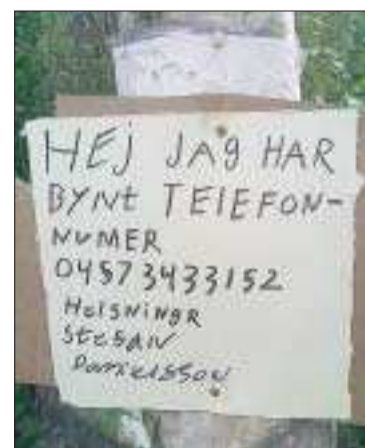 HEj JAg HAR
BYNt TElEFON-
NUMER
04573433152
HelSNiNgR
StefaN
DaNielssoN